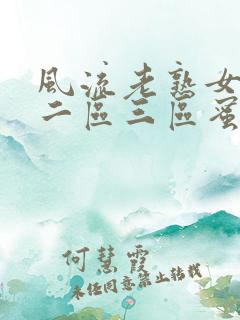 風流老熟女
二區三區蜜
何慧霞
未经同意禁止转载